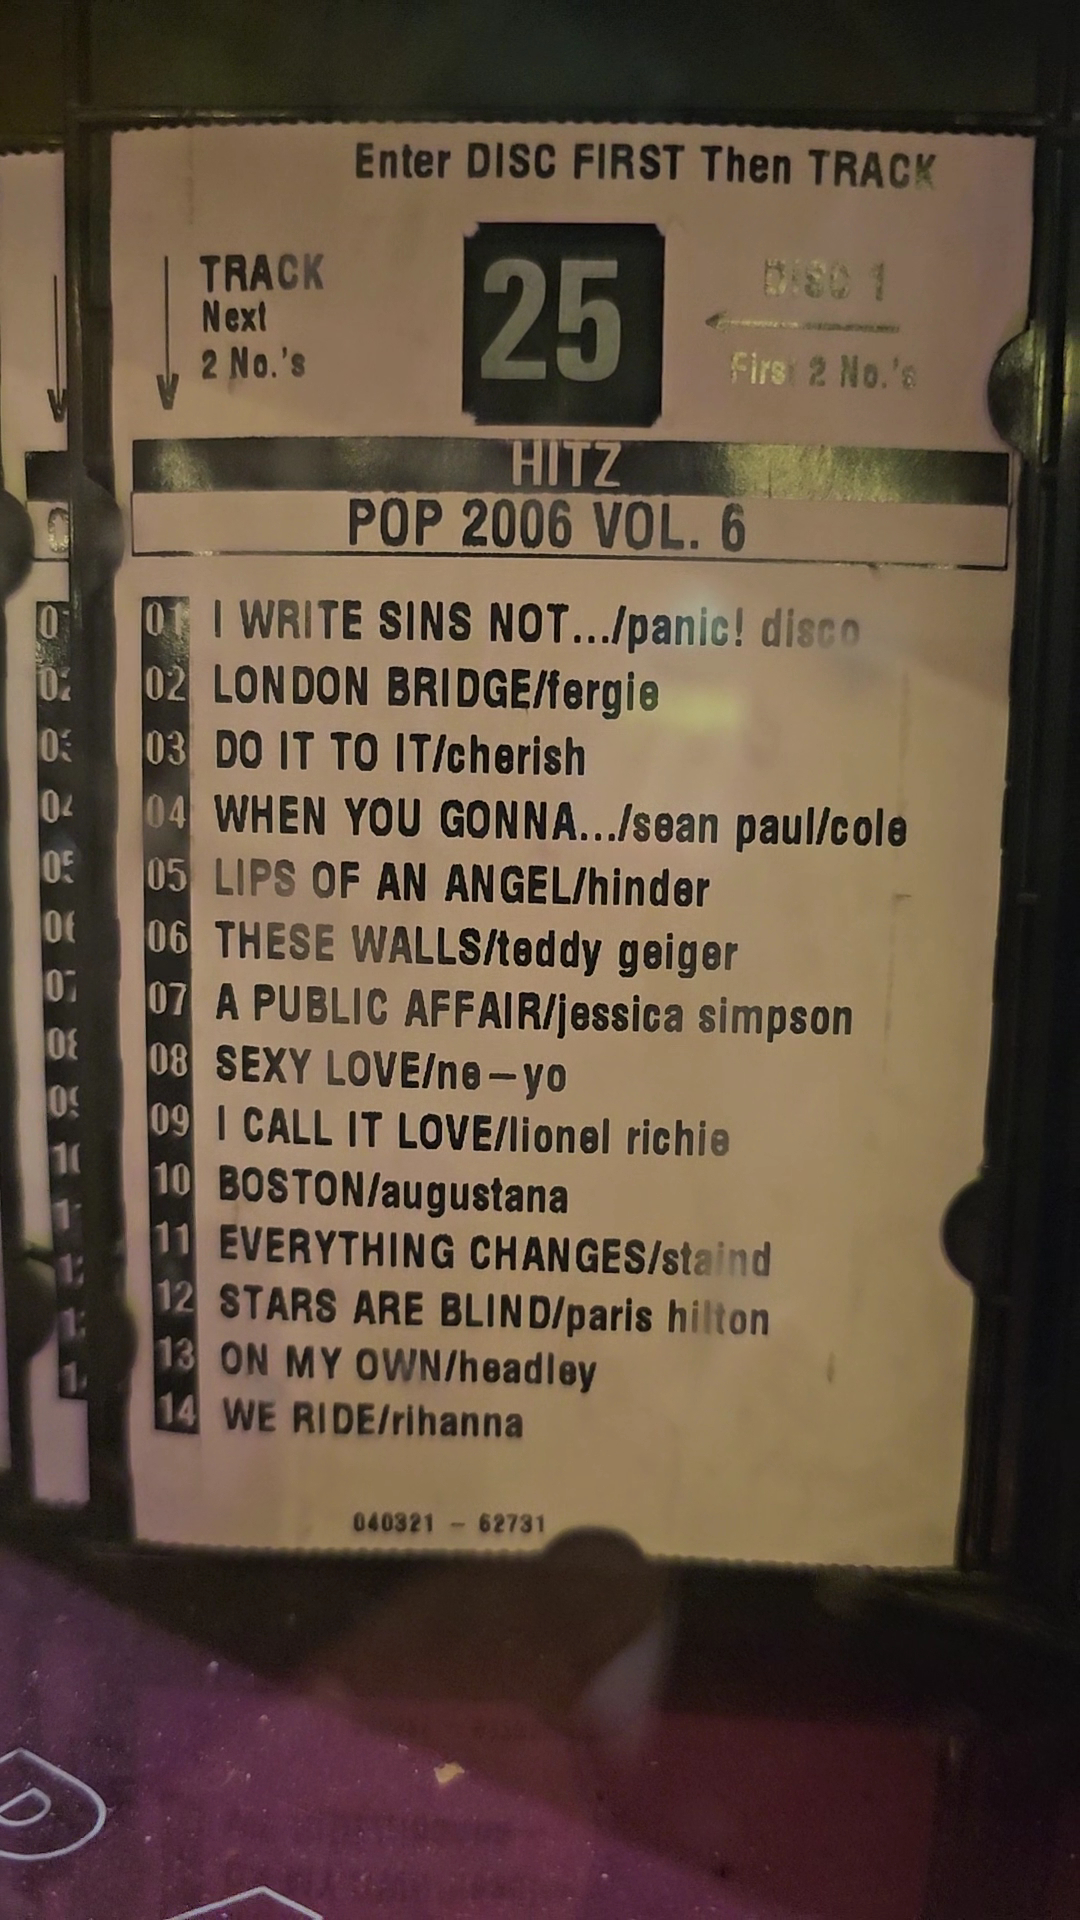 Enter DISC FIRST Then TRACK
TRACK
Next
2 No.'s
25
DISC 1
First 2 No.'s
HITZ
POP 2006 VOL. 6
01 I WRITE SINS NOT.../panic! disco
02 LONDON BRIDGE/fergie
03 DO IT TO IT/cherish
04 WHEN YOU GONNA.../sean paul/cole
05 LIPS OF AN ANGEL/hinder
06 THESE WALLS/teddy geiger
07 A PUBLIC AFFAIR/jessica simpson
08 SEXY LOVE/ne-yo
09 I CALL IT LOVE/lionel richie
10 BOSTON/augustana
11 EVERYTHING CHANGES/staind
12 STARS ARE BLIND/paris hilton
13 ON MY OWN/headley
14 WE RIDE/rihanna
040321 - 62731